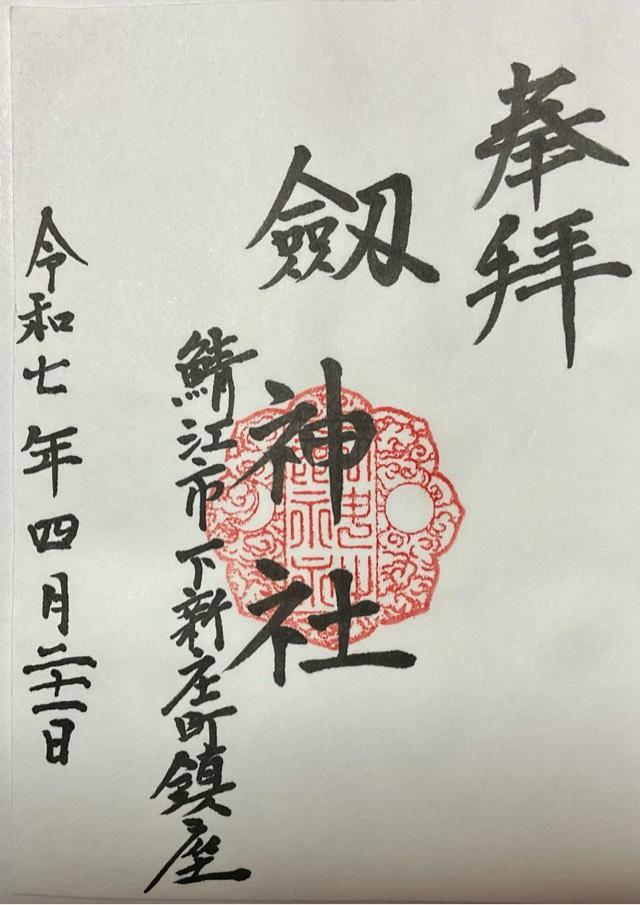 奉拜
劔神社
鯖江市下新庄町鎮座
令和七年四月二十一日